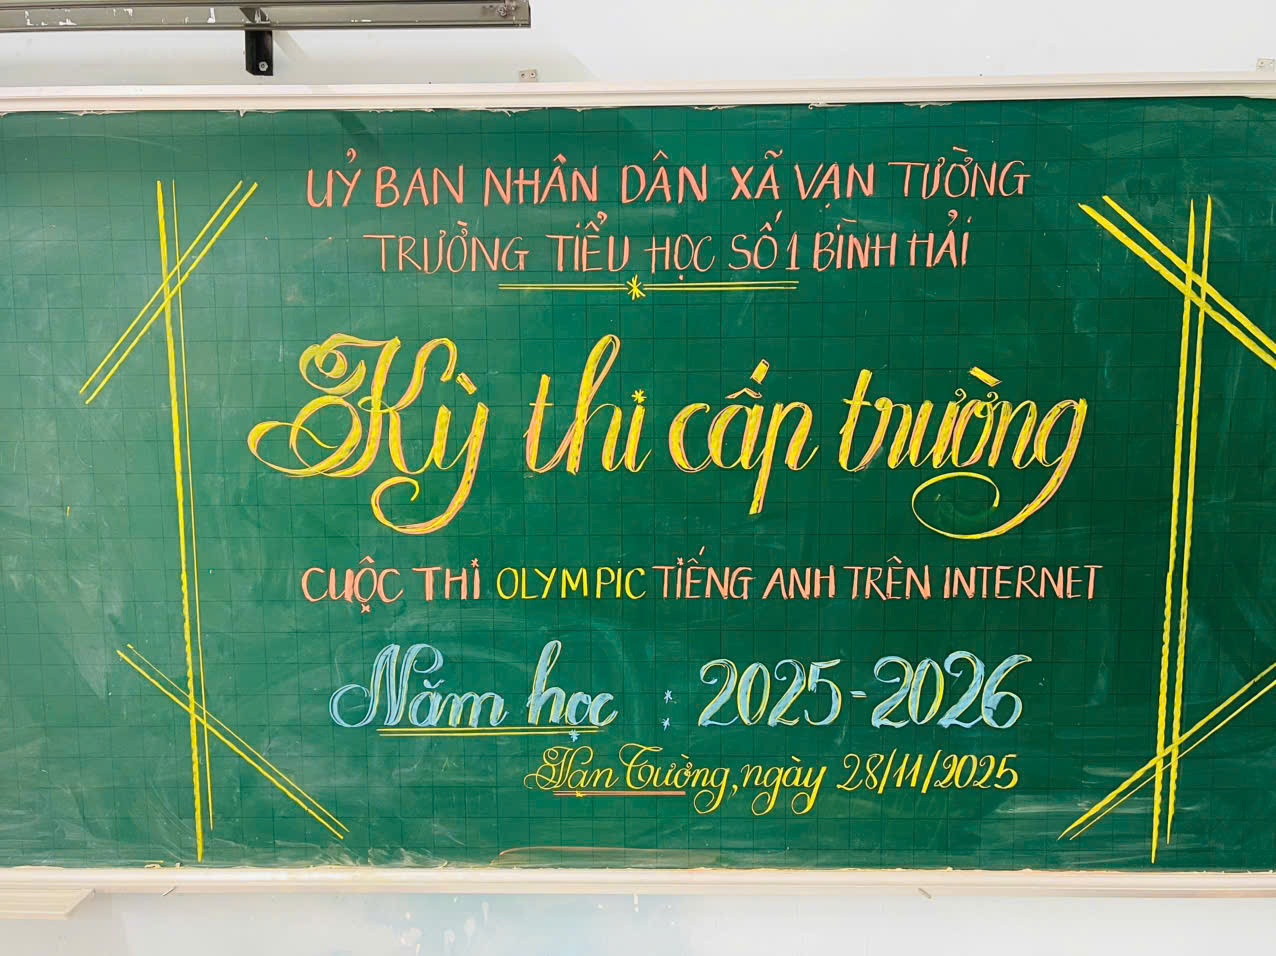 UỶ BAN NHÂN DÂN XÃ VẠN TƯỜNG
TRƯỜNG TIỂU HỌC SỐ 1 BÌNH HẢI
Kỳ thi cấp trường
CUỘC THI OLYMPIC TIẾNG ANH TRÊN INTERNET
Năm học : 2025-2026
Vạn Tường, ngày 28/11/2025